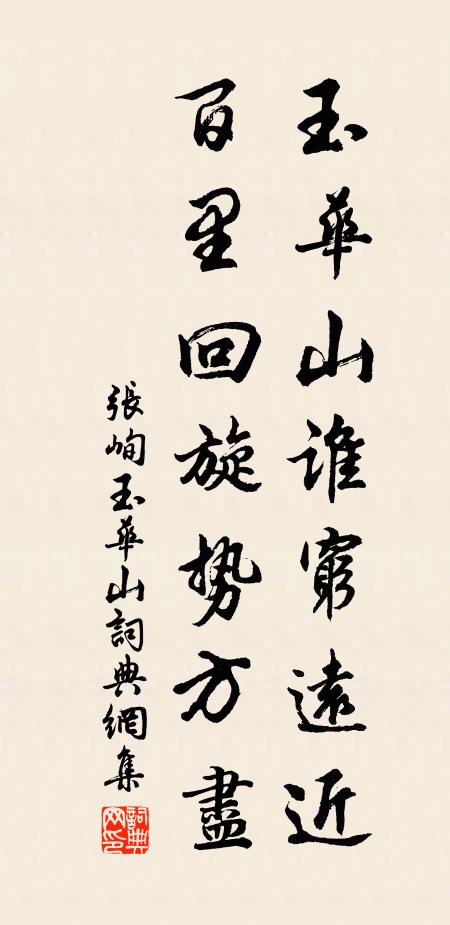 玉華山誰窮遠近
百里回旋勢方盡
張峋玉華山詞典網集
詞典网印